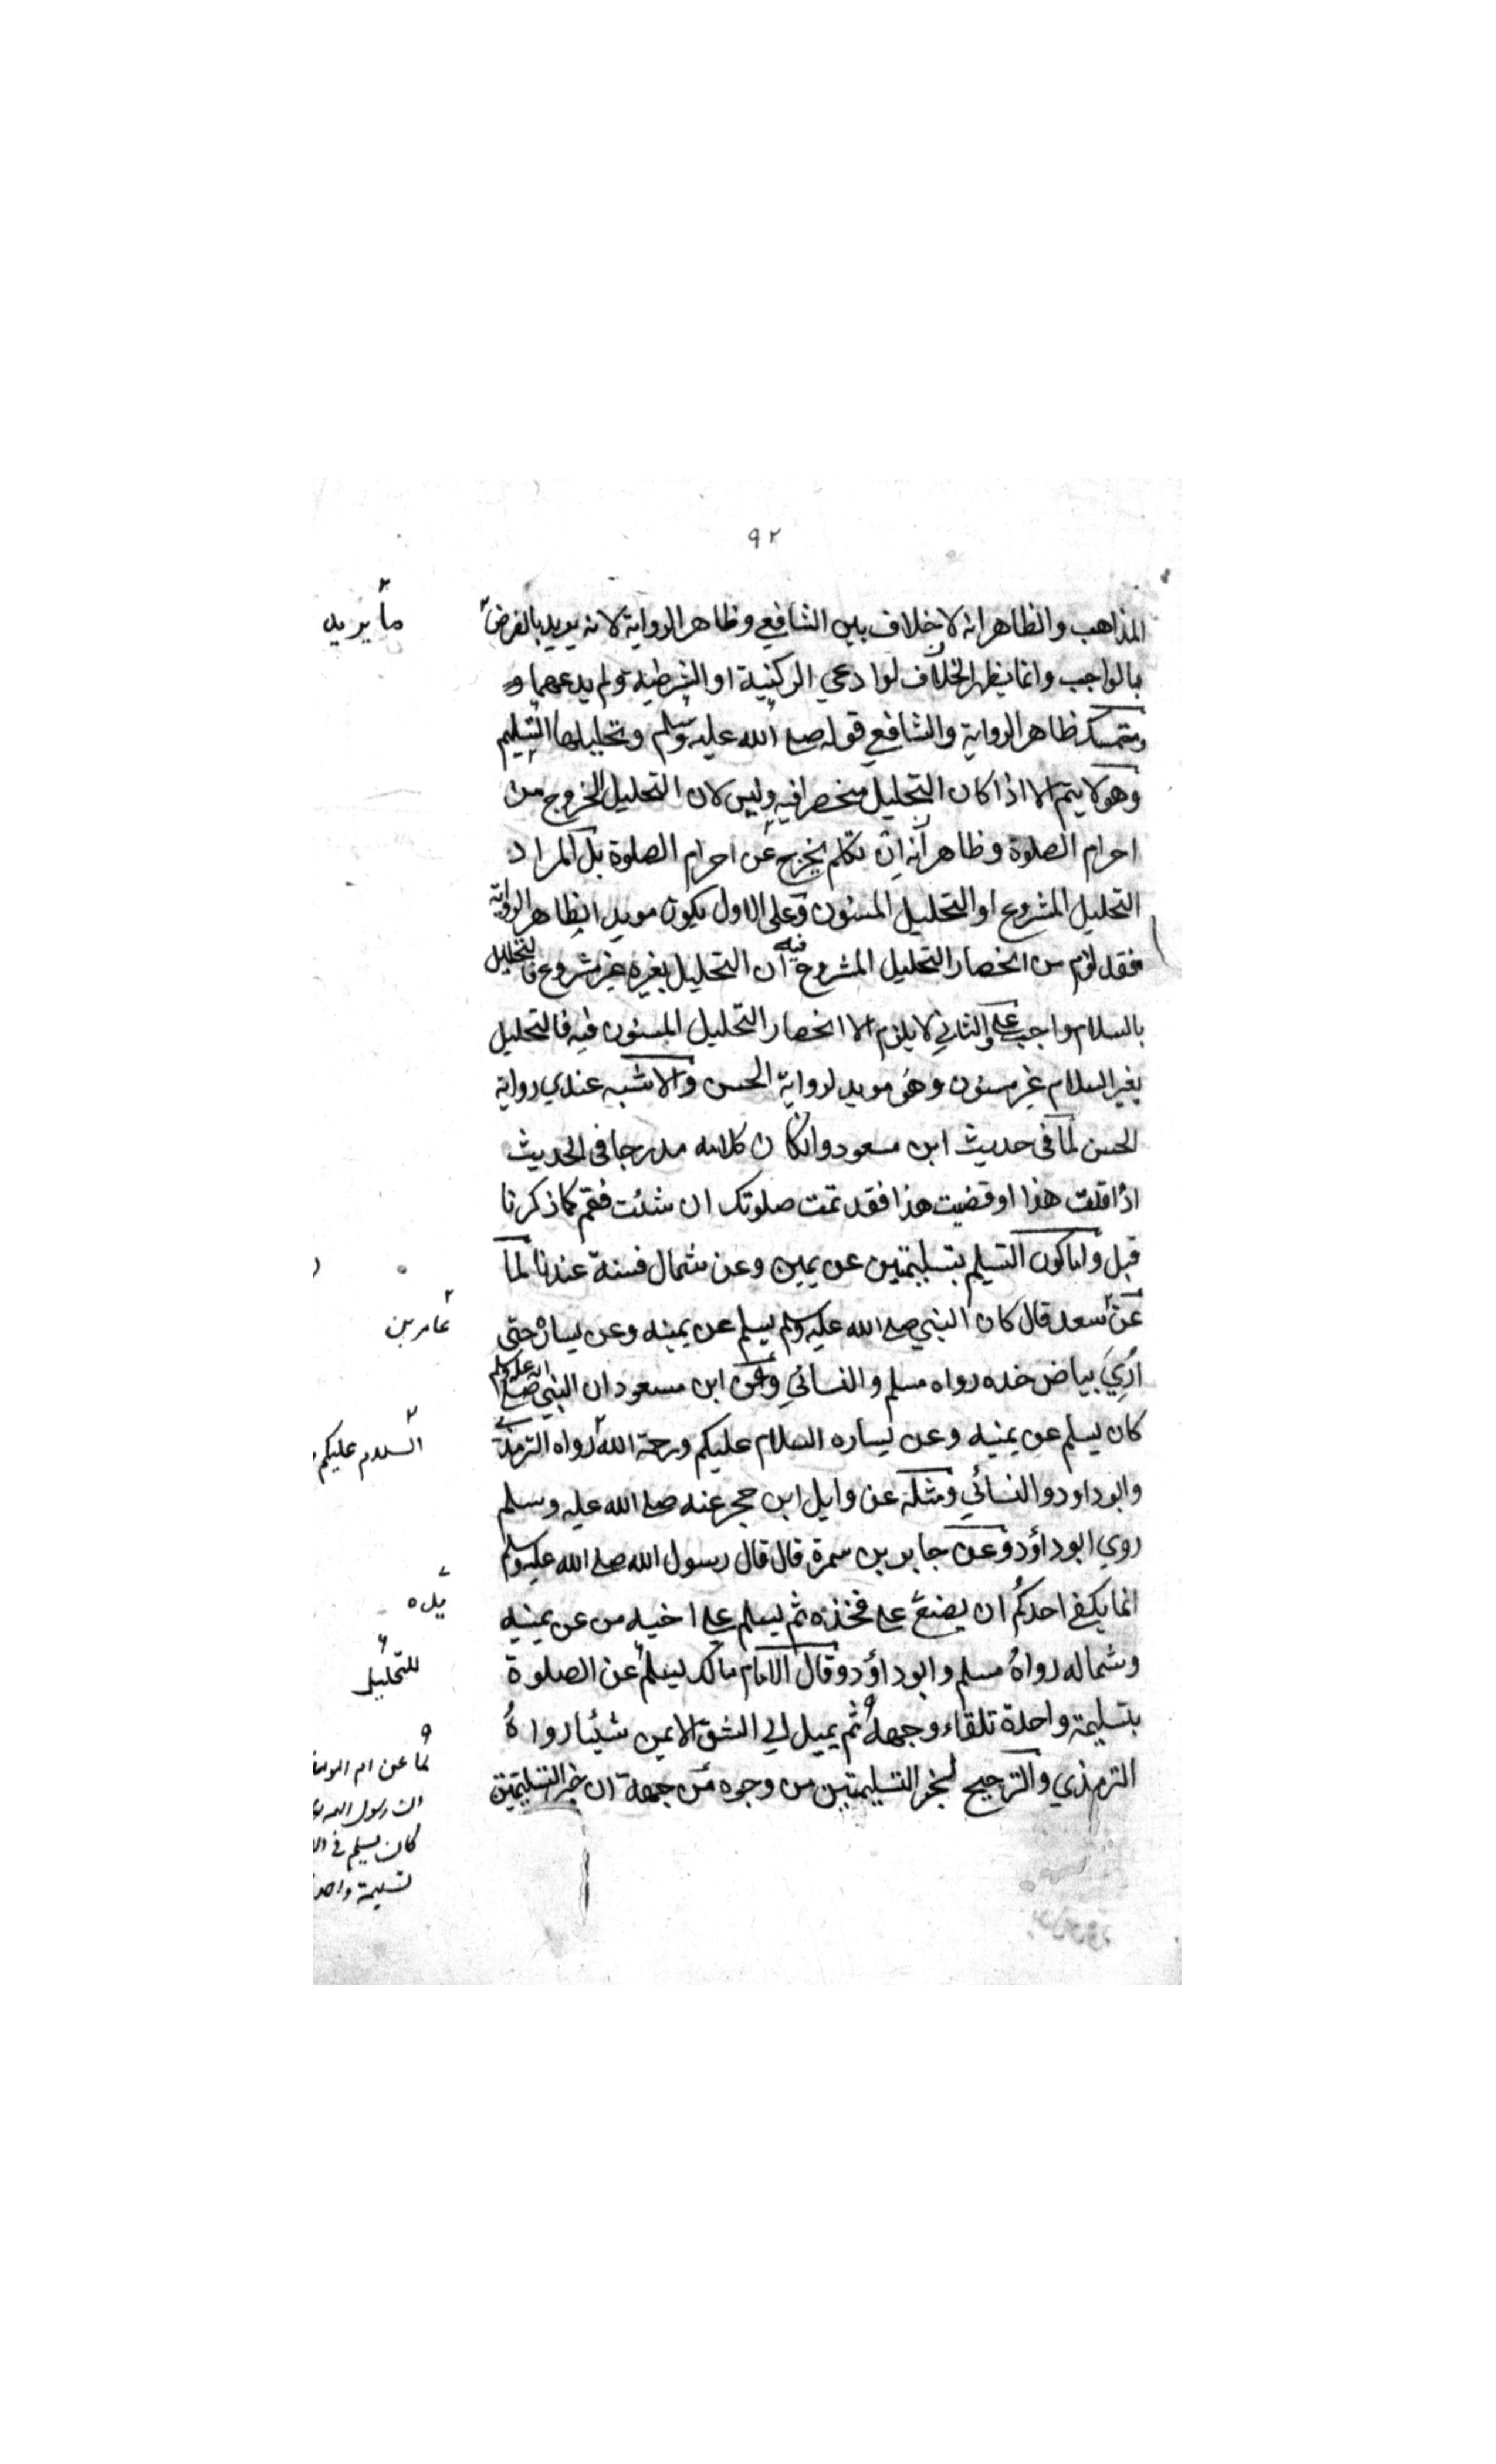 ٩٢
المذاهب والظاهر انه لا خلاف بين الشافعي وظاهر الرواية لانه يريد بالفرض
ما يريد
بالواجب وانما يظهر الخلاف لو ادعي الركنية او الشرطية ولم يدعهما و
متمسك ظاهر الرواية والشافعي قوله صلى الله عليه وسلم وتحليلها التسليم
وهو لا يتم الا اذا كان التحليل منحصرا فيه وليس لان التحليل الخروج من
احرام الصلوة وظاهر انه ان تكلم يخرج عن احرام الصلوة بل المراد
التحليل المشروع او التحليل المسنون وعلى الاول يكون مويدا لظاهر الرواية
فقد لزم من انحصار التحليل المشروع فيه ان التحليل بغيره غير مشروع فالتحليل
بالسلام واجب وعلى الثاني لا يلزم الا انحصار التحليل المسنون فيه فالتحليل
بغير السلام غير مسنون وهو مويد لرواية الحسن والاشبه عندي رواية
الحسن لما في حديث ابن مسعود وان كان كلامه مدرجا في الحديث
اذا قلت هذا او قضيت هذا فقد تمت صلوتك ان شئت فقم كما ذكرنا
قبل واما كون التسليم بتسليمتين عن يمين وعن شمال فسنة عندنا لما
عن سعد قال كان النبي صلى الله عليه وسلم يسلم عن يمينه وعن يساره حتى
عامر بن
اري بياض خده رواه مسلم والنسائي وعن ابن مسعود ان النبي صلى الله عليه وسلم
كان يسلم عن يمينه وعن يساره السلام عليكم ورحمة الله رواه الترمذي
السلام عليكم
وابو داود والنسائي ومثله عن وايل ابن حجر عنه صلى الله عليه وسلم
روي ابو داؤد وعن جابر بن سمرة قال قال رسول الله صلى الله عليه وسلم
انما يكفي احدكم ان يضع على فخذه ثم يسلم على اخيه من عن يمينه
يده
وشماله رواه مسلم وابو داؤد وقال الامام مالك يسلم عن الصلوة
للتحليل
بتسليمة واحدة تلقاء وجهه ثم يميل الي الشق الايمن شيئا رواه
الترمذي والترجيح لخبر التسليمتين من وجوه من جهة ان خبر التسليمتين
لما عن ام
ان رسول الله
كان يسلم في
تسليمة